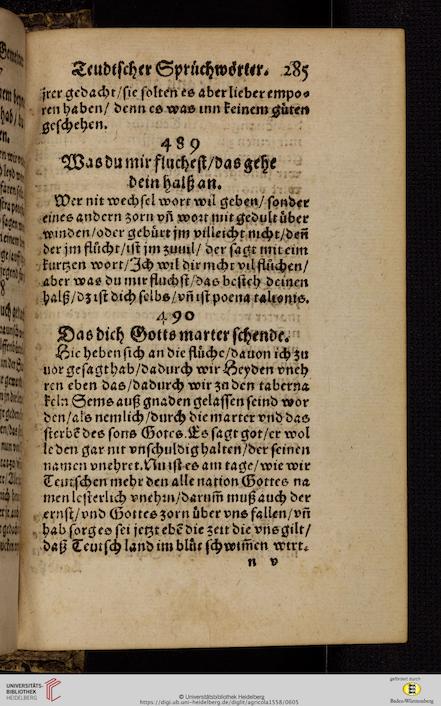 Teudtscher Sprüchwörter. 285
jrer gedacht/sie solten es aber lieber empo=
ren haben/ denn es was inn keinem gůten
geschehen.
489
Was du mir fluchest/das gehe
dein halß an.
Wer nit wechsel wort wil geben/ sonder
eines andern zorn vñ wort mit gedult über
winden/oder gebürt jm villeicht nicht/deñ
der jm flücht/ist jm zuuil/ der sagt mit eim
kurtzen wort/Ich wil dir nicht vil flüchen/
aber was du mir fluchst/das besteh deinen
halß/dz ist dich selbs/vñ ist poena talionis.
490
Das dich Gotts marter schende.
Hie heben sich an die flüche/dauon ich zu
uor gesagt hab/dadurch wir Heyden vneh
ren eben das/dadurch wir zu den taberna
keln Sems auß gnaden gelassen seind wor
den/als nemlich/durch die marter vnd das
sterbẽ des sons Gotes. Es sagt got/er wol
le den gar nit vnschuldig halten/der seinen
namen vnehret. Nu ist es am tage/wie wir
Teutschen mehr den alle nation Gottes na
men lesterlich vnehrn/darum̃ muß auch der
ernst/vnd Gottes zorn über vns fallen/vñ
hab sorg es sei jetzt ebẽ die zeit die vns gilt/
daß Teutsch land im blůt schwim̃en wirt.
n v
UNIVERSITÄTS-
BIBLIOTHEK
HEIDELBERG
© Universitätsbibliothek Heidelberg
https://digi.ub.uni-heidelberg.de/diglit/agricola1558/0605
gefördert durch
Baden-Württemberg